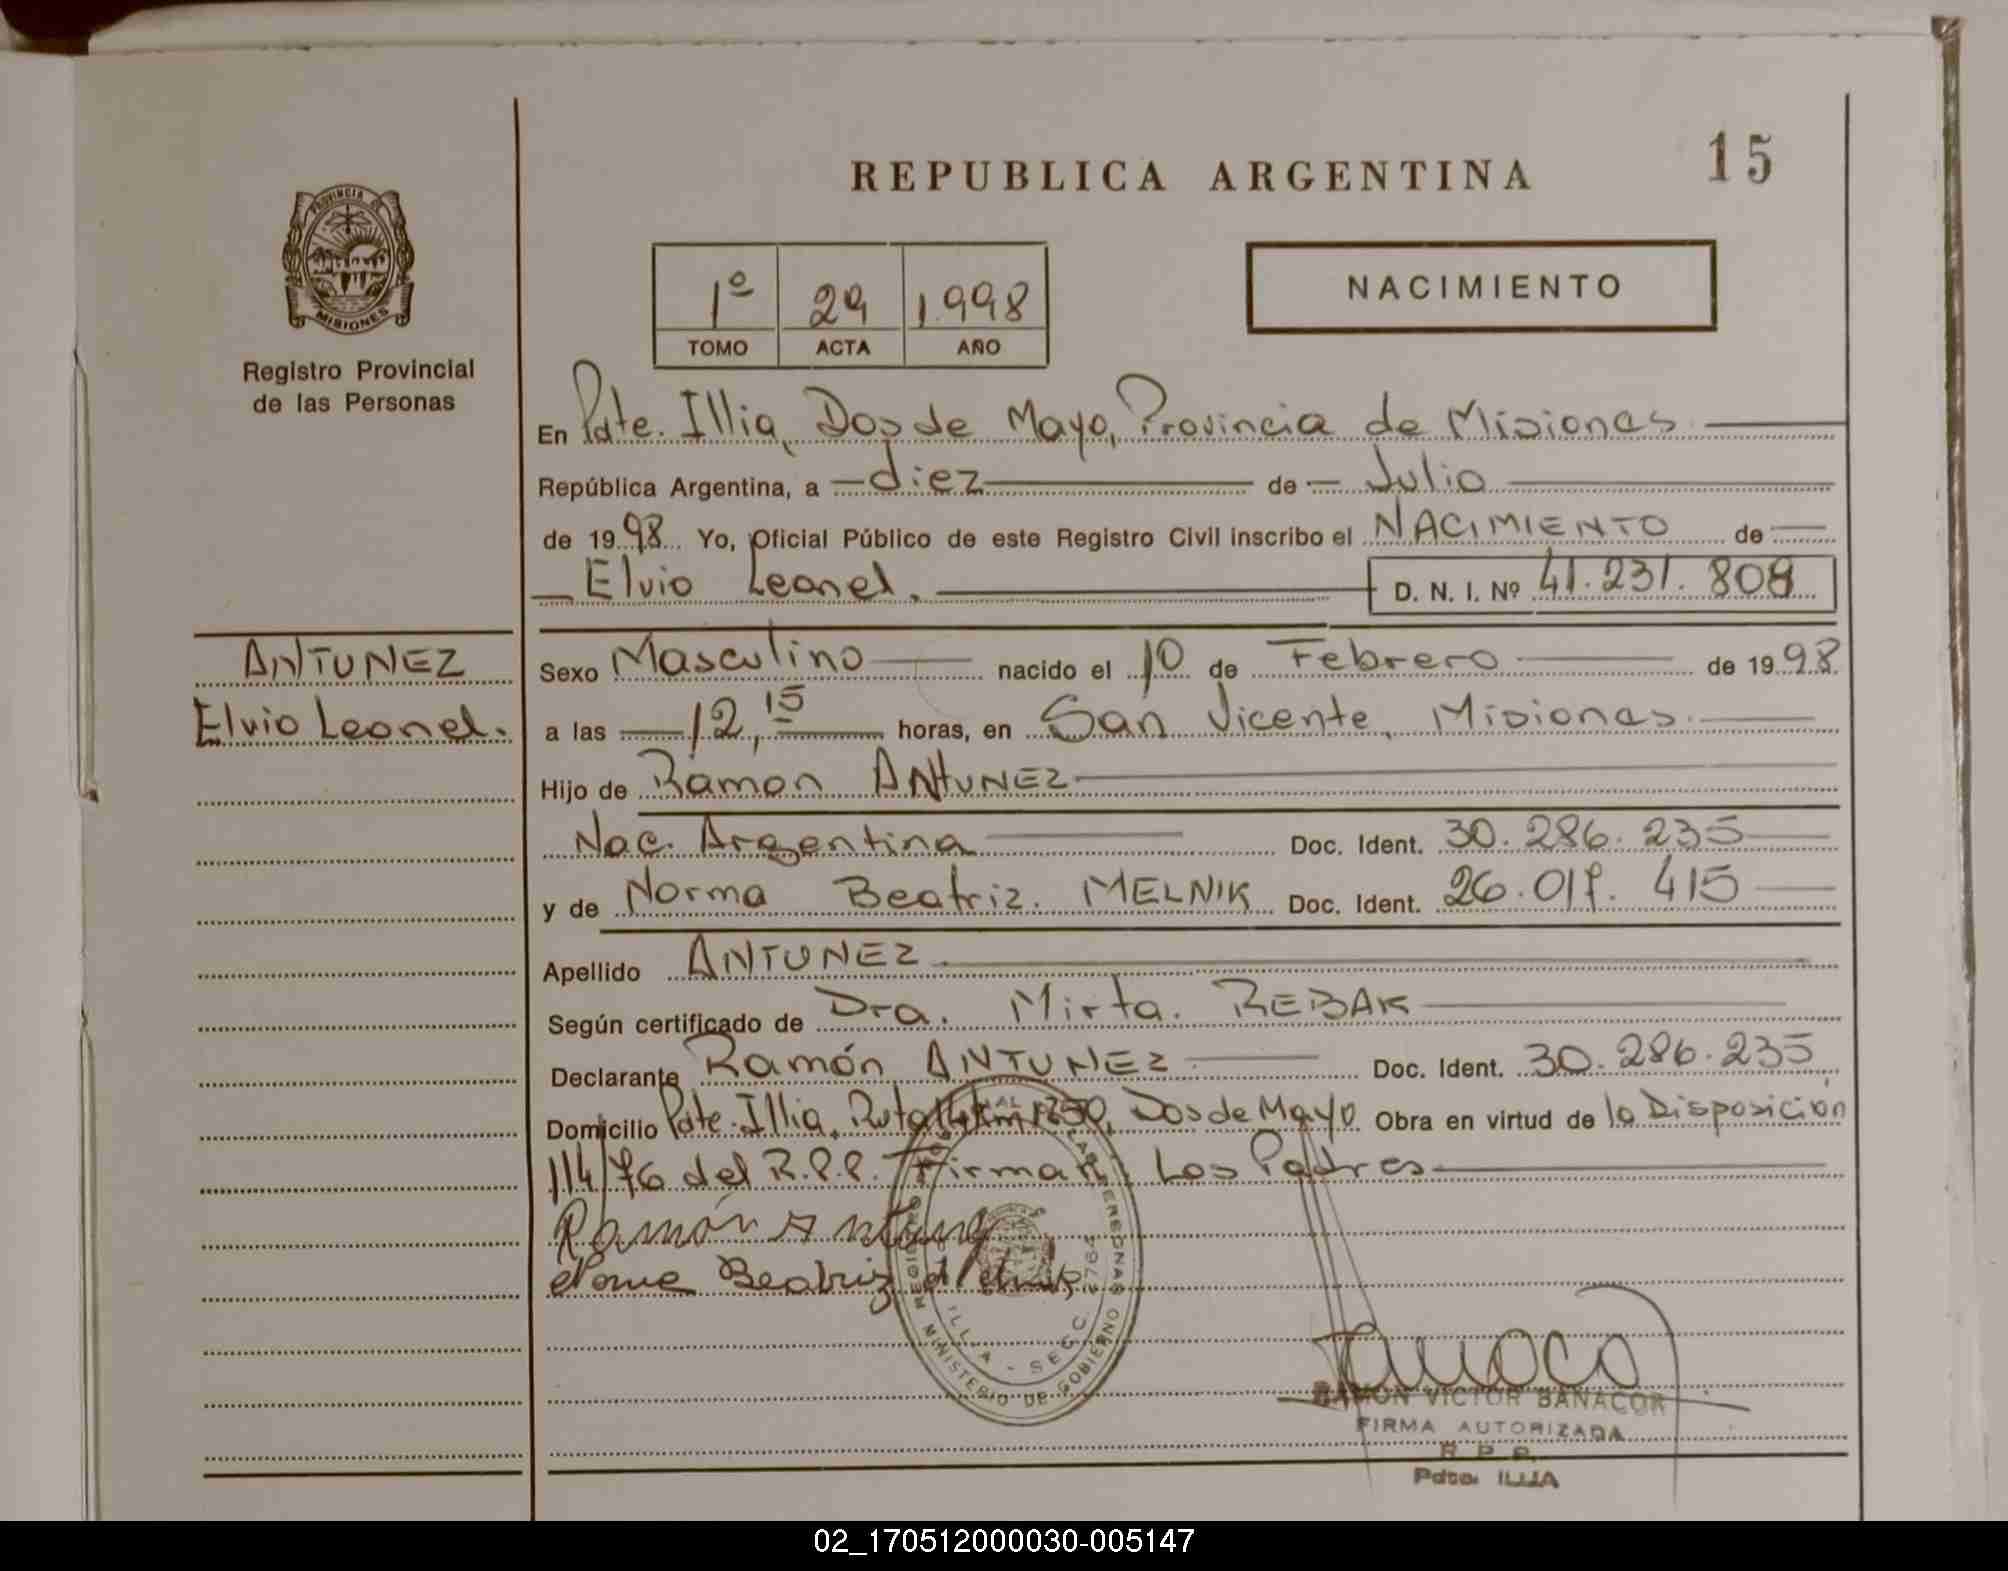 15
REPUBLICA ARGENTINA
PROVINCIA DE
MISIONES
Registro Provincial
de las Personas
1º 29 1.998
TOMO ACTA AÑO
NACIMIENTO
En Pdte. Illia, Dos de Mayo, Provincia de Misiones
República Argentina, a diez de Julio
de 1998 Yo, Oficial Público de este Registro Civil inscribo el NACIMIENTO de
Elvio Leonel. D. N. I. Nº 41.231.808
ANTUNEZ
Elvio Leonel.
Sexo Masculino nacido el 10 de Febrero de 1998
a las 12,15 horas, en San Vicente, Misiones.
Hijo de Ramon ANTUNEZ
Nac. Argentina Doc. Ident. 30.286.235
y de Norma Beatriz. MELNIK Doc. Ident. 26.017.415
Apellido ANTUNEZ
Según certificado de Dra. Mirta. REBAK
Declarante Ramón ANTUNEZ Doc. Ident. 30.286.235
Domicilio Pdte. Illia, Ruta 14 km 1250, Dos de Mayo Obra en virtud de la Disposicion
114/76 del R.P.P. Firman Los Padres
Ramón Antunez
Beatriz Melnik
MINISTERIO DE GOBIERNO
ILLIA - SECC. 2764
RAMON VICTOR BANACOR
FIRMA AUTORIZADA
R. P. P.
Pdte. ILLIA
02_170512000030-005147